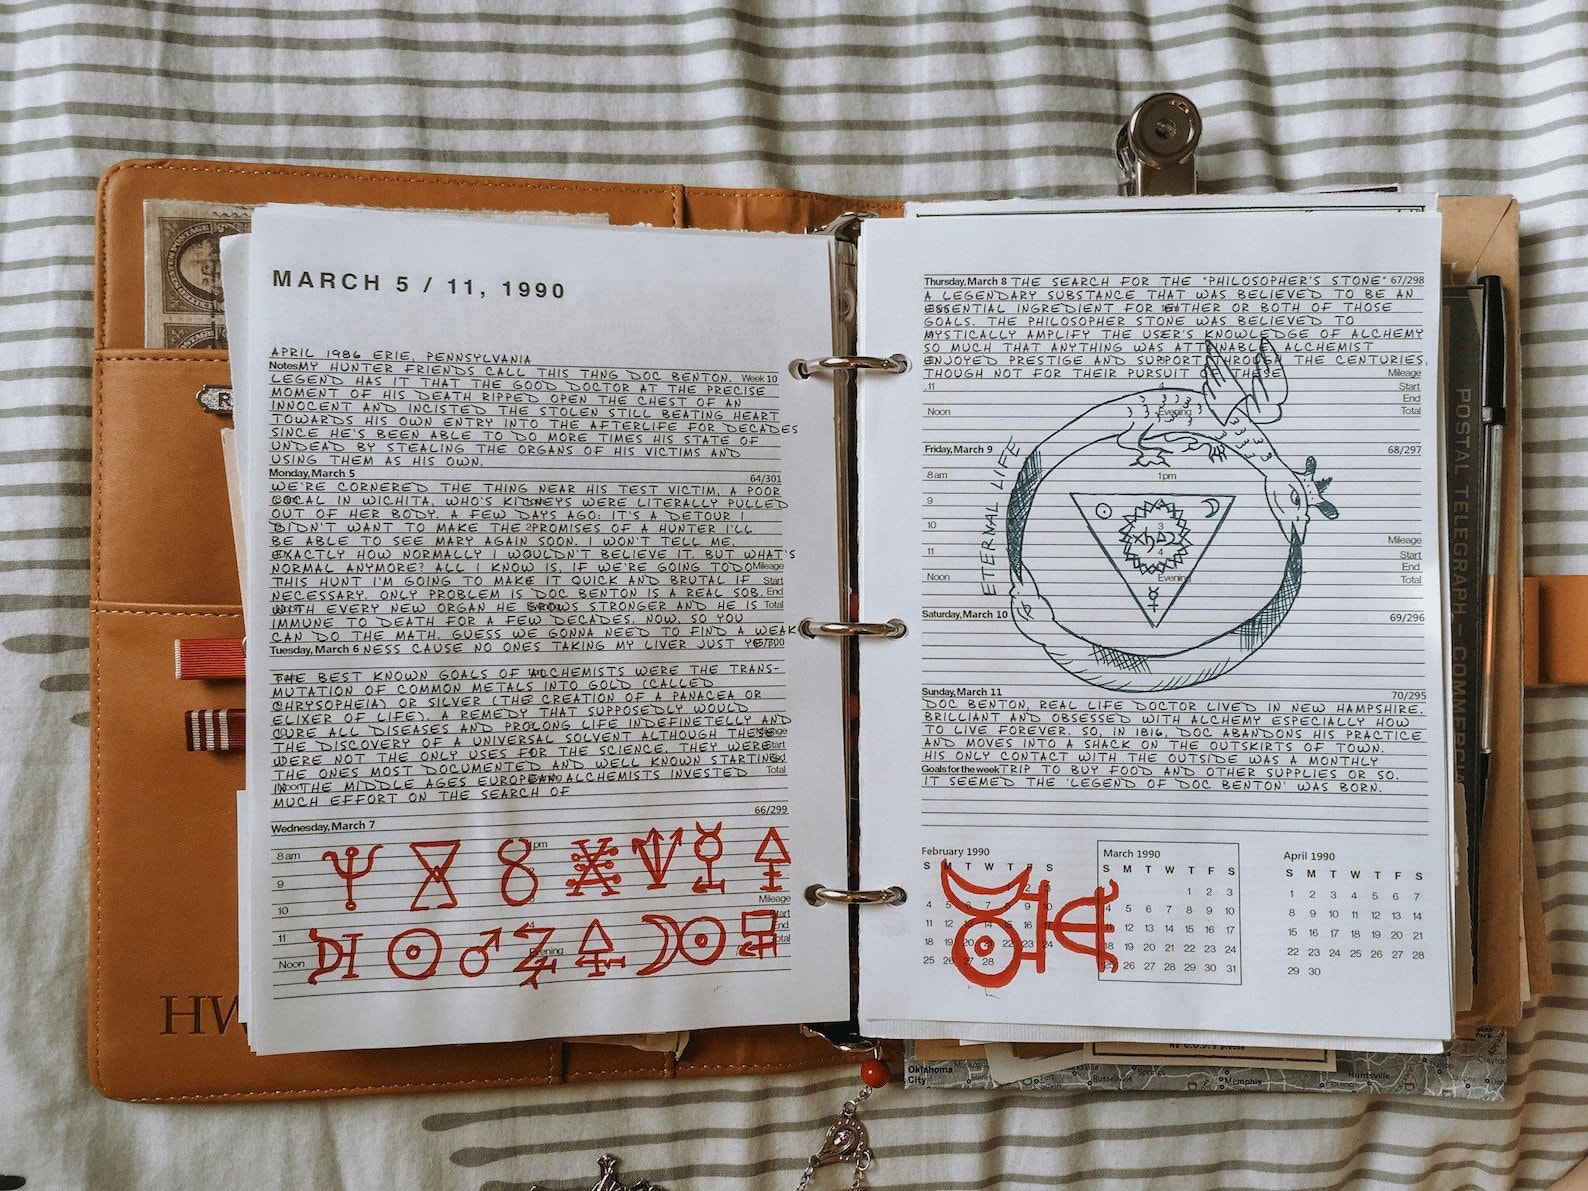 MARCH 5 / 11, 1990
APRIL 1986 ERIE, PENNSYLVANIA
Notes MY HUNTER FRIENDS CALL THIS THNG DOC BENTON. Week 10
LEGEND HAS IT THAT THE GOOD DOCTOR AT THE PRECISE
MOMENT OF HIS DEATH RIPPED OPEN THE CHEST OF AN
INNOCENT AND INCISTED THE STOLEN STILL BEATING HEART
TOWARDS HIS OWN ENTRY INTO THE AFTERLIFE FOR DECADES
SINCE HE'S BEEN ABLE TO DO MORE TIMES HIS STATE OF
UNDEAD BY STEALING THE ORGANS OF HIS VICTIMS AND
USING THEM AS HIS OWN.
Monday, March 5 64/301
WE'RE CORNERED THE THING NEAR HIS TEST VICTIM, A POOR
LOCAL IN WICHITA, WHO'S KIDNEYS WERE LITERALLY PULLED
OUT OF HER BODY. A FEW DAYS AGO. IT'S A DETOUR I
DIDN'T WANT TO MAKE THE PROMISES OF A HUNTER I'LL
BE ABLE TO SEE MARY AGAIN SOON. I WON'T TELL ME.
EXACTLY HOW NORMALLY I WOULDN'T BELIEVE IT. BUT WHAT'S
NORMAL ANYMORE? ALL I KNOW IS, IF WE'RE GOING TO DO Mileage
THIS HUNT I'M GOING TO MAKE IT QUICK AND BRUTAL IF Start
NECESSARY. ONLY PROBLEM IS DOC BENTON IS A REAL SOB. End
WITH EVERY NEW ORGAN HE GROWS STRONGER AND HE IS Total
IMMUNE TO DEATH FOR A FEW DECADES. NOW. SO YOU
CAN DO THE MATH. GUESS WE GONNA NEED TO FIND A WEAK
Tuesday, March 6 NESS CAUSE NO ONES TAKING MY LIVER JUST YET 65/300
THE BEST KNOWN GOALS OF ALCHEMISTS WERE THE TRANS-
MUTATION OF COMMON METALS INTO GOLD (CALLED
CHRYSOPHEIA) OR SILVER (THE CREATION OF A PANACEA OR
ELIXER OF LIFE). A REMEDY THAT SUPPOSEDLY WOULD
CURE ALL DISEASES AND PROLONG LIFE INDEFINETELLY AND
THE DISCOVERY OF A UNIVERSAL SOLVENT ALTHOUGH THESE
WERE NOT THE ONLY USES FOR THE SCIENCE. THEY WERE Start
THE ONES MOST DOCUMENTED AND WELL KNOWN STARTING End
IN THE MIDDLE AGES EUROPEAN ALCHEMISTS INVESTED Total
MUCH EFFORT ON THE SEARCH OF
66/299
Wednesday, March 7
8 am pm
9
10 Mileage
11 4 Start
End
Evening Total
Noon
Thursday, March 8 THE SEARCH FOR THE "PHILOSOPHER'S STONE" 67/298
A LEGENDARY SUBSTANCE THAT WAS BELIEVED TO BE AN
ESSENTIAL INGREDIENT FOR EITHER OR BOTH OF THOSE
GOALS. THE PHILOSOPHER STONE WAS BELIEVED TO
MYSTICALLY AMPLIFY THE USER'S KNOWLEDGE OF ALCHEMY
SO MUCH THAT ANYTHING WAS ATTAINABLE. ALCHEMIST
ENJOYED PRESTIGE AND SUPPORT THROUGH THE CENTURIES,
THOUGH NOT FOR THEIR PURSUIT OF THESE Mileage
11 4 Start
End
Noon Evening Total
Friday, March 9 68/297
8 am 1 pm
9
10 3
11 4 Mileage
Start
End
Noon Evening Total
ETERNAL LIFE
Saturday, March 10 69/296
Sunday, March 11 70/295
DOC BENTON, REAL LIFE DOCTOR LIVED IN NEW HAMPSHIRE.
BRILLIANT AND OBSESSED WITH ALCHEMY ESPECIALLY HOW
TO LIVE FOREVER. SO, IN 1816, DOC ABANDONS HIS PRACTICE
AND MOVES INTO A SHACK ON THE OUTSKIRTS OF TOWN.
HIS ONLY CONTACT WITH THE OUTSIDE WAS A MONTHLY
Goals for the week TRIP TO BUY FOOD AND OTHER SUPPLIES OR SO.
IT SEEMED THE 'LEGEND OF DOC BENTON' WAS BORN.
February 1990
S M T W T F S
4 5 6 7 9 10
11 12 13 15 16
18 19 20 21 22 23 24
25 26 27 28
March 1990
S M T W T F S
1 2 3
4 5 6 7 8 9 10
11 12 13 14 15 16 17
18 19 20 21 22 23 24
25 26 27 28 29 30 31
April 1990
S M T W T F S
1 2 3 4 5 6 7
8 9 10 11 12 13 14
15 16 17 18 19 20 21
22 23 24 25 26 27 28
29 30
HW
POSTAGE
POSTAL TELEGRAPH - COMMERCIAL
Oklahoma
City
Russellville
Memphis
Huntsville